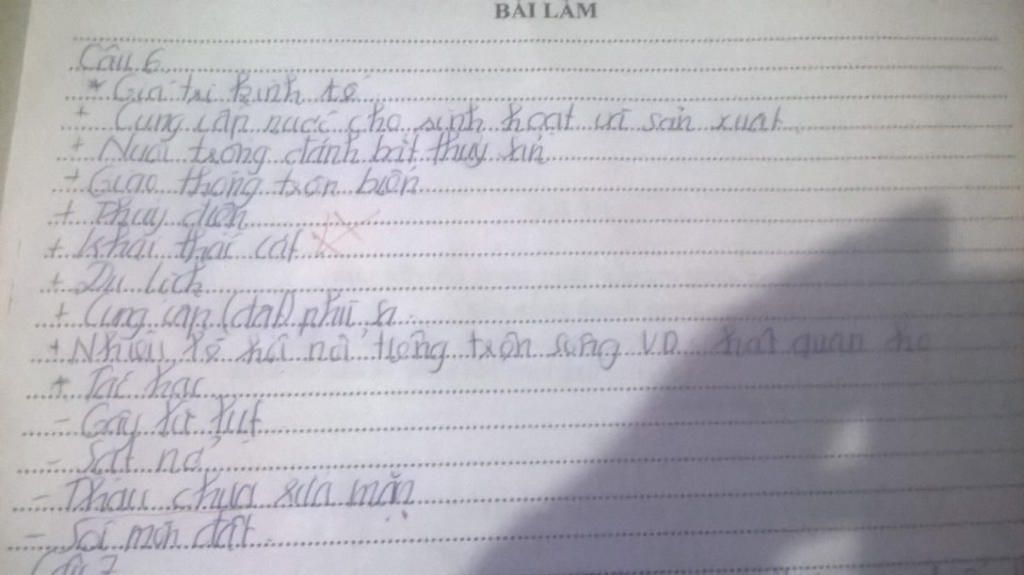 BÀI LÀM
Câu 6
* Giá trị kinh tế
+ Cung cấp nước cho sinh hoạt và sản xuất
+ Nuôi trồng đánh bắt thủy sản
+ Giao thông trên biển
+ Thủy điện
+ Khai thái cát
+ Du lịch
+ Cung cấp (đất) phù sa
+ Nhiều lễ hội nổi trên sông VD hát quan họ
* Tác hại
- Gây lũ lụt
- Sạt nở
- Thâu chua xâm mặn
- Sói mòn đất
Câu 7